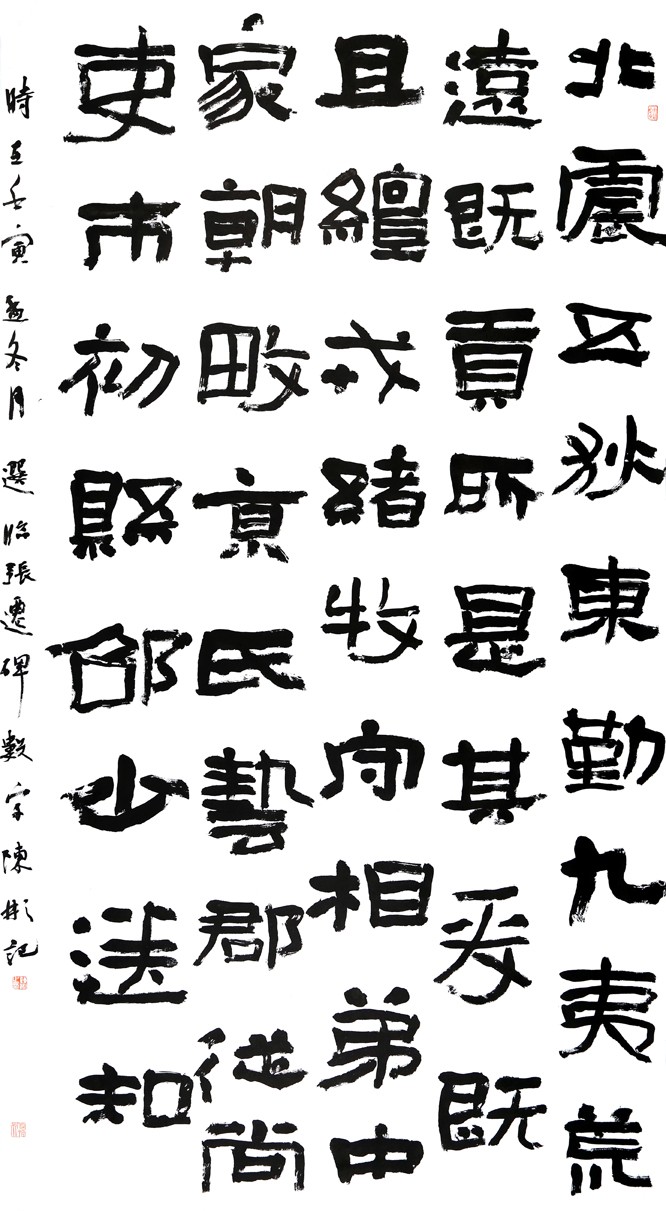 北震五狄東勤九夷荒
遠既貢所是其爰既
且繵戎緒牧守相弟中
家朝畋京氏藝郡從尚
吏市初縣邵少送知
時在壬寅孟冬月選臨張遷碑數字陳彬記